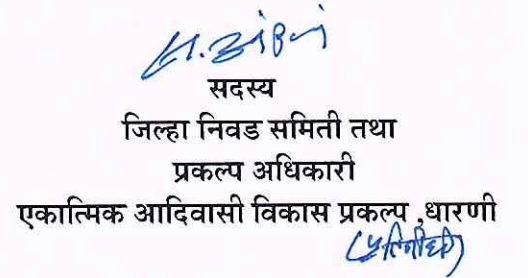 सदस्य
जिल्हा निवड समिती तथा
प्रकल्प अधिकारी
एकात्मिक आदिवासी विकास प्रकल्प ,धारणी
(प्रतिनिधी)